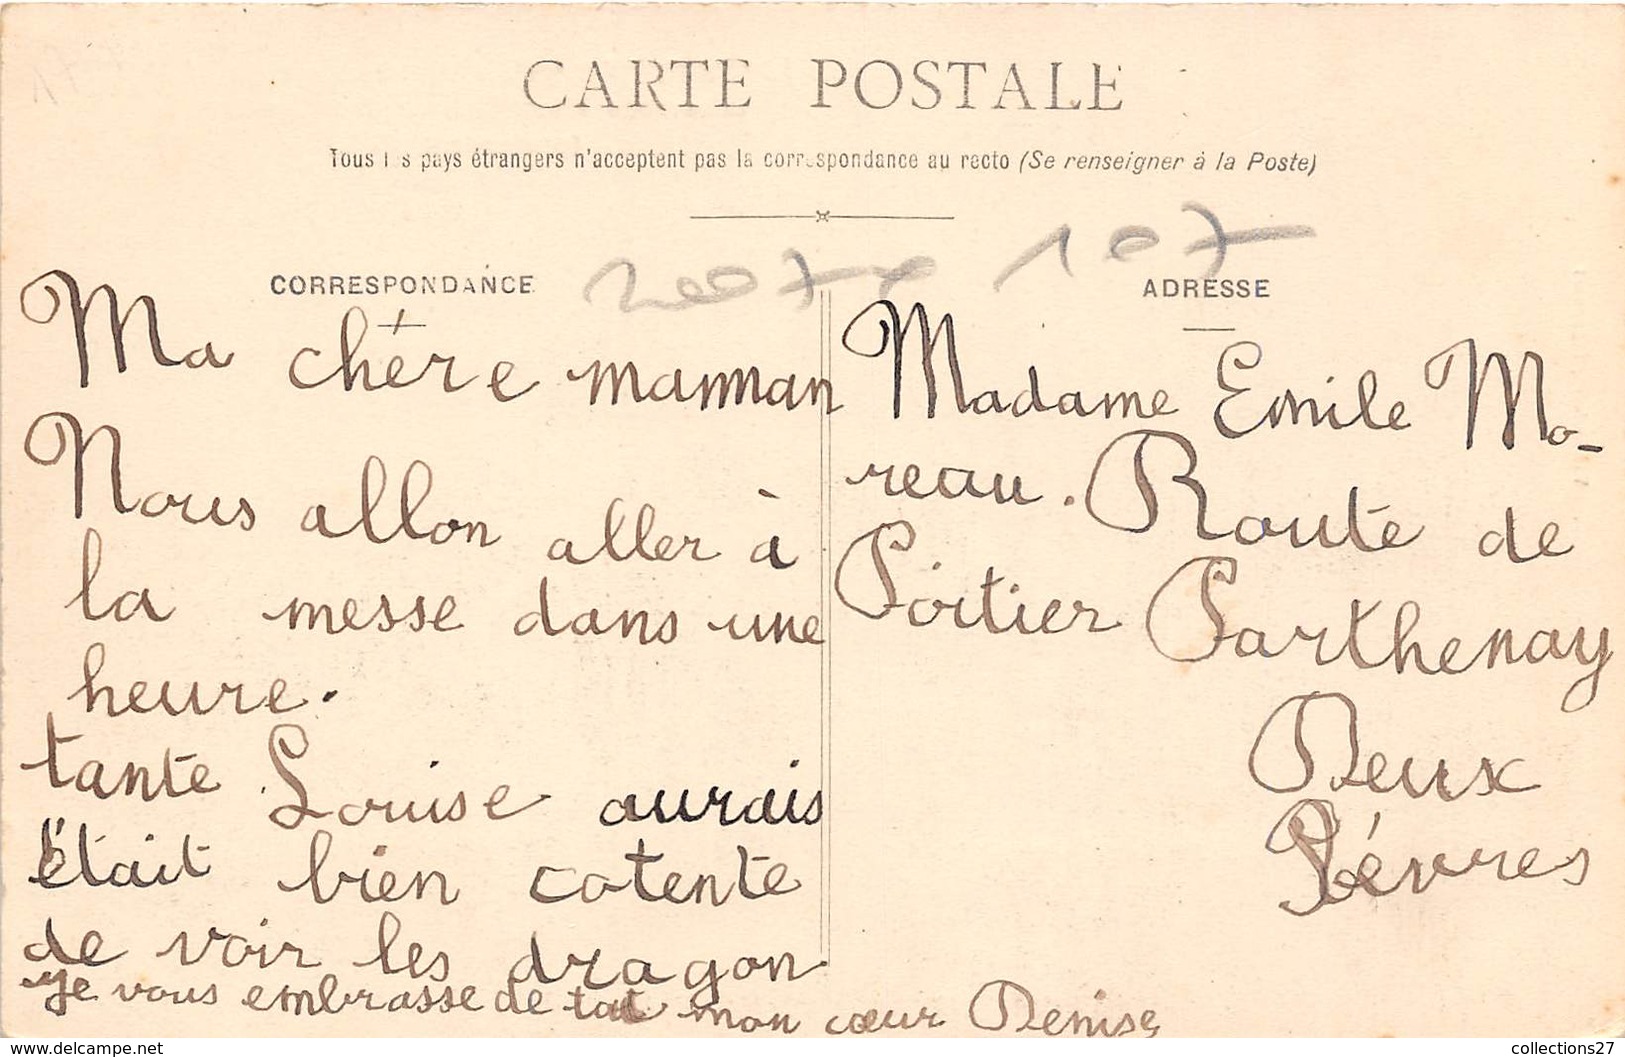 CARTE POSTALE
Tous les pays étrangers n'acceptent pas la correspondance au recto (Se renseigner à la Poste)
107
CORRESPONDANCE
Ma chère manman
Nous allon aller à
la messe dans une
heure.
tante Louise aurais
était bien cotente
de voir les dragon
Je vous embrasse de tout mon cœur Denise
ADRESSE
Madame Emile Mo-
reau. Route de
Poitier Parthenay
Deux
Sévres
collections27